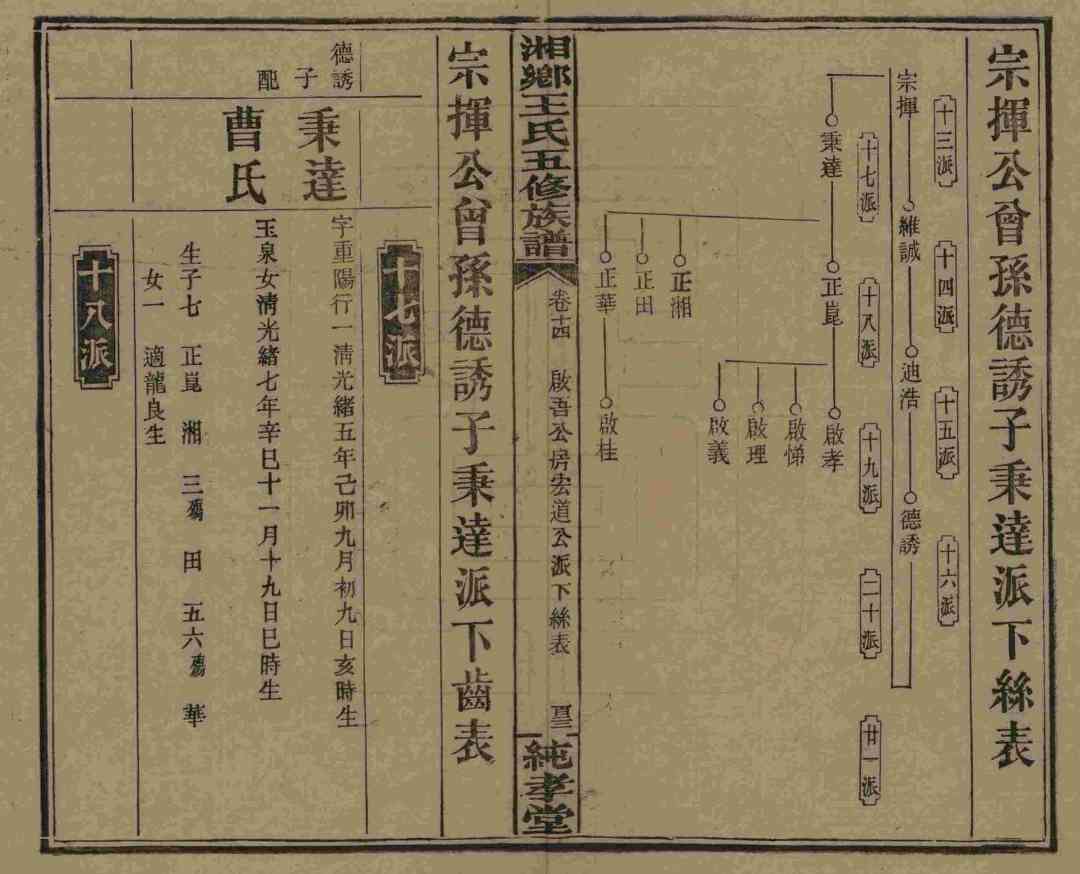 宗揮公曾孫德誘子秉達派下絲表
十三派
十四派
十五派
十六派
宗揮
維誠
迪浩
德誘
十七派
十八派
十九派
二十派
廿一派
秉達
正崑
啟孝
啟悌
啟理
啟義
正湘
正田
正華
啟桂
湘鄉王氏五修族譜
卷十四
啟吾公房宏道公派下絲表
純孝堂
宗揮公曾孫德誘子秉達派下齒表
十七派
德誘子
秉達
字重陽行一清光緒五年己卯九月初九日亥時生
配
曹氏
玉泉女清光緒七年辛巳十一月十九日巳時生
生子七 正崑 湘 三殤 田 五六殤 華
女一 適龍良生
十八派